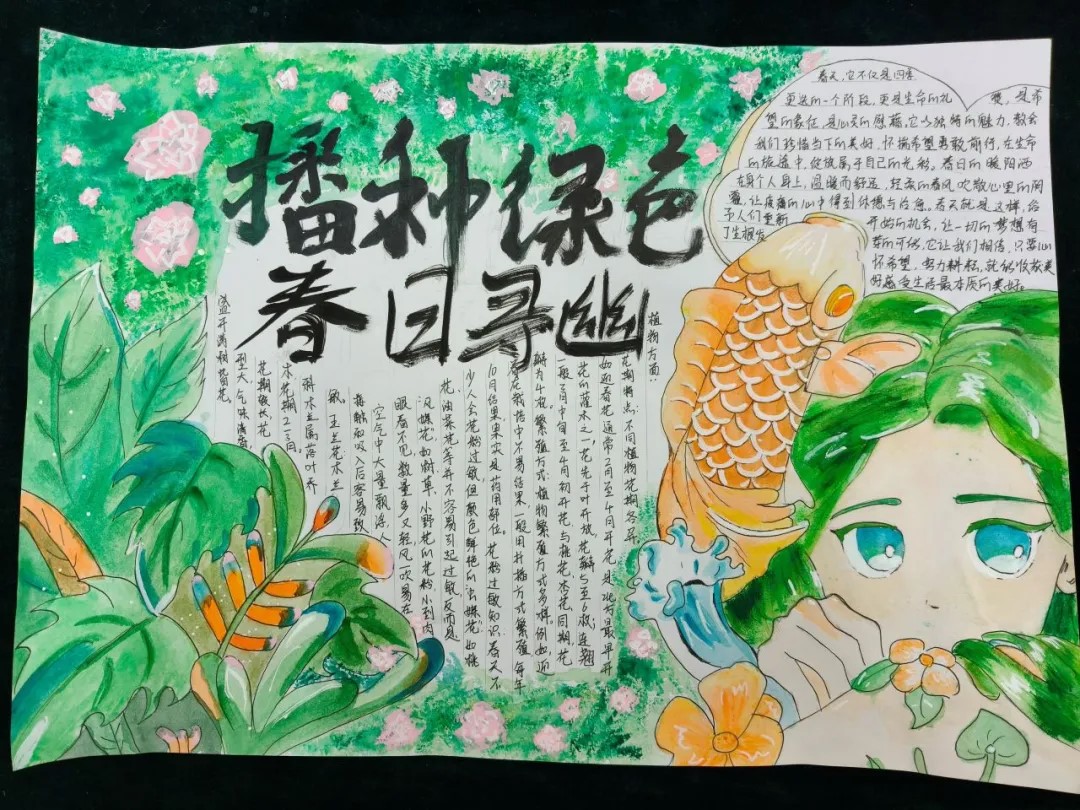 播种绿色
春日寻幽
春天，它不仅是四季
更迭的一个阶段，更是生命的礼赞，是希
望的象征，是心灵的慰藉。它以独特的魅力，教会
我们珍惜当下的美好，怀揣希望勇敢前行，在生命
的旅途中，绽放属于自己的光彩。春日的暖阳洒
在身个人身上，温暖而舒适，轻柔的春风吹散心里的阴
霾，让疲惫的心中得到休憩与治愈。春天就是这样，给
予人们重新开始的机会，让一切的梦想有
了生根发芽的开始，它让我们相信，只要心
怀希望，努力耕耘，就能收获美
好感受生活最本质的美好。
植物方面：
花期特点：不同植物花期各异，
如迎春花通常2月至4月开花，是北方最早开
花的灌木之一，花先于叶开放，花瓣5至6枚；连翘
一般3月中旬至4月初开花，与桃花杏花同期，花
瓣为4枚。繁殖方式：植物繁殖方式多样，例如，迎
春花栽培中不易结果，一般用扦插方式繁殖，每年
10月结果，果实是药用部位。花粉过敏知识：春天不
少人会花粉过敏，但颜色鲜艳的“虫媒花”如桃
花、油菜花等并不容易引起过敏，反而是
“风媒花”如树草、小野花的花粉小到肉
眼看不见，数量多又轻，风一吹易在
空气中大量飘浮，人
接触或吸入后容易致
敏。玉兰花木兰
科木兰属落叶乔
木，花期2-3月。
花期较长，花
型大、气味清香
盛开满树繁花。